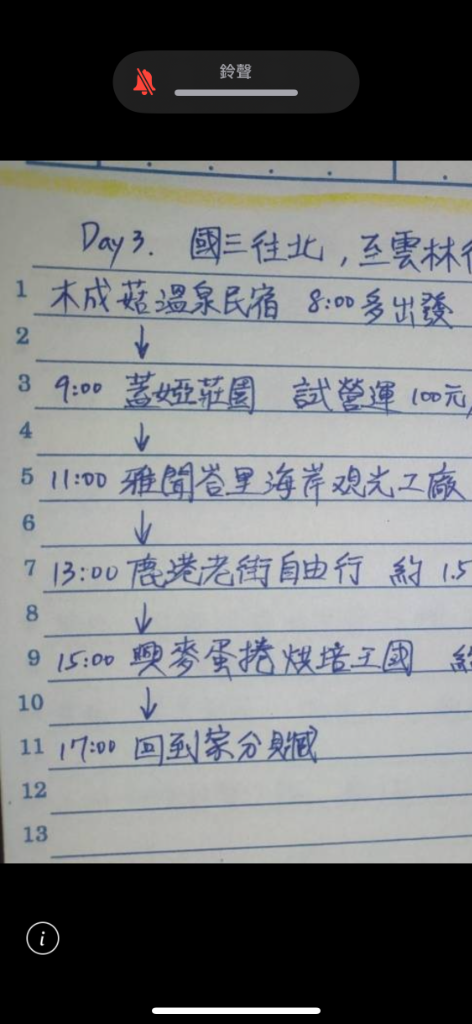 鈴聲
Day 3. 國三往北，至雲林
1 木成菇溫泉民宿 8:00多出發
2 ↓
3 9:00 蓋婭莊園 試營運 100元
4 ↓
5 11:00 雅聞峇里海岸观光工廠
6 ↓
7 13:00 鹿港老街自由行 約 1.5
8 ↓
9 15:00 興麥蛋捲烘培王國 約
10 ↓
11 17:00 回到家分贓
12
13
i